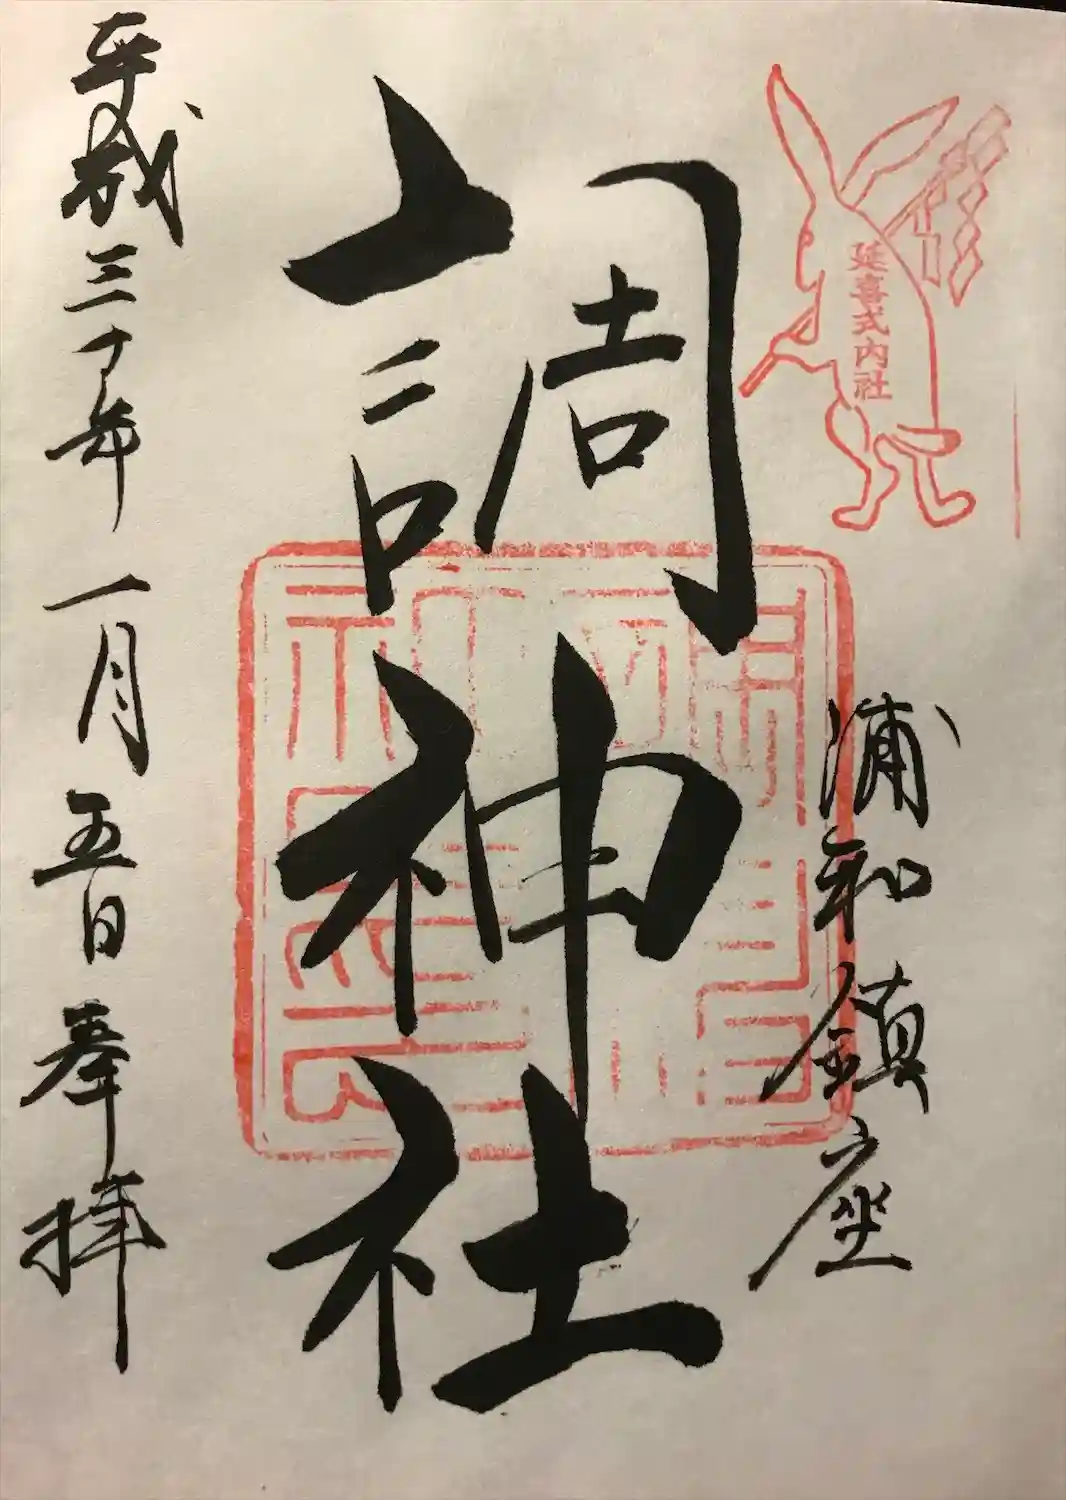 延喜式内社
浦和鎮座
調神社
平成三十年一月五日奉拝